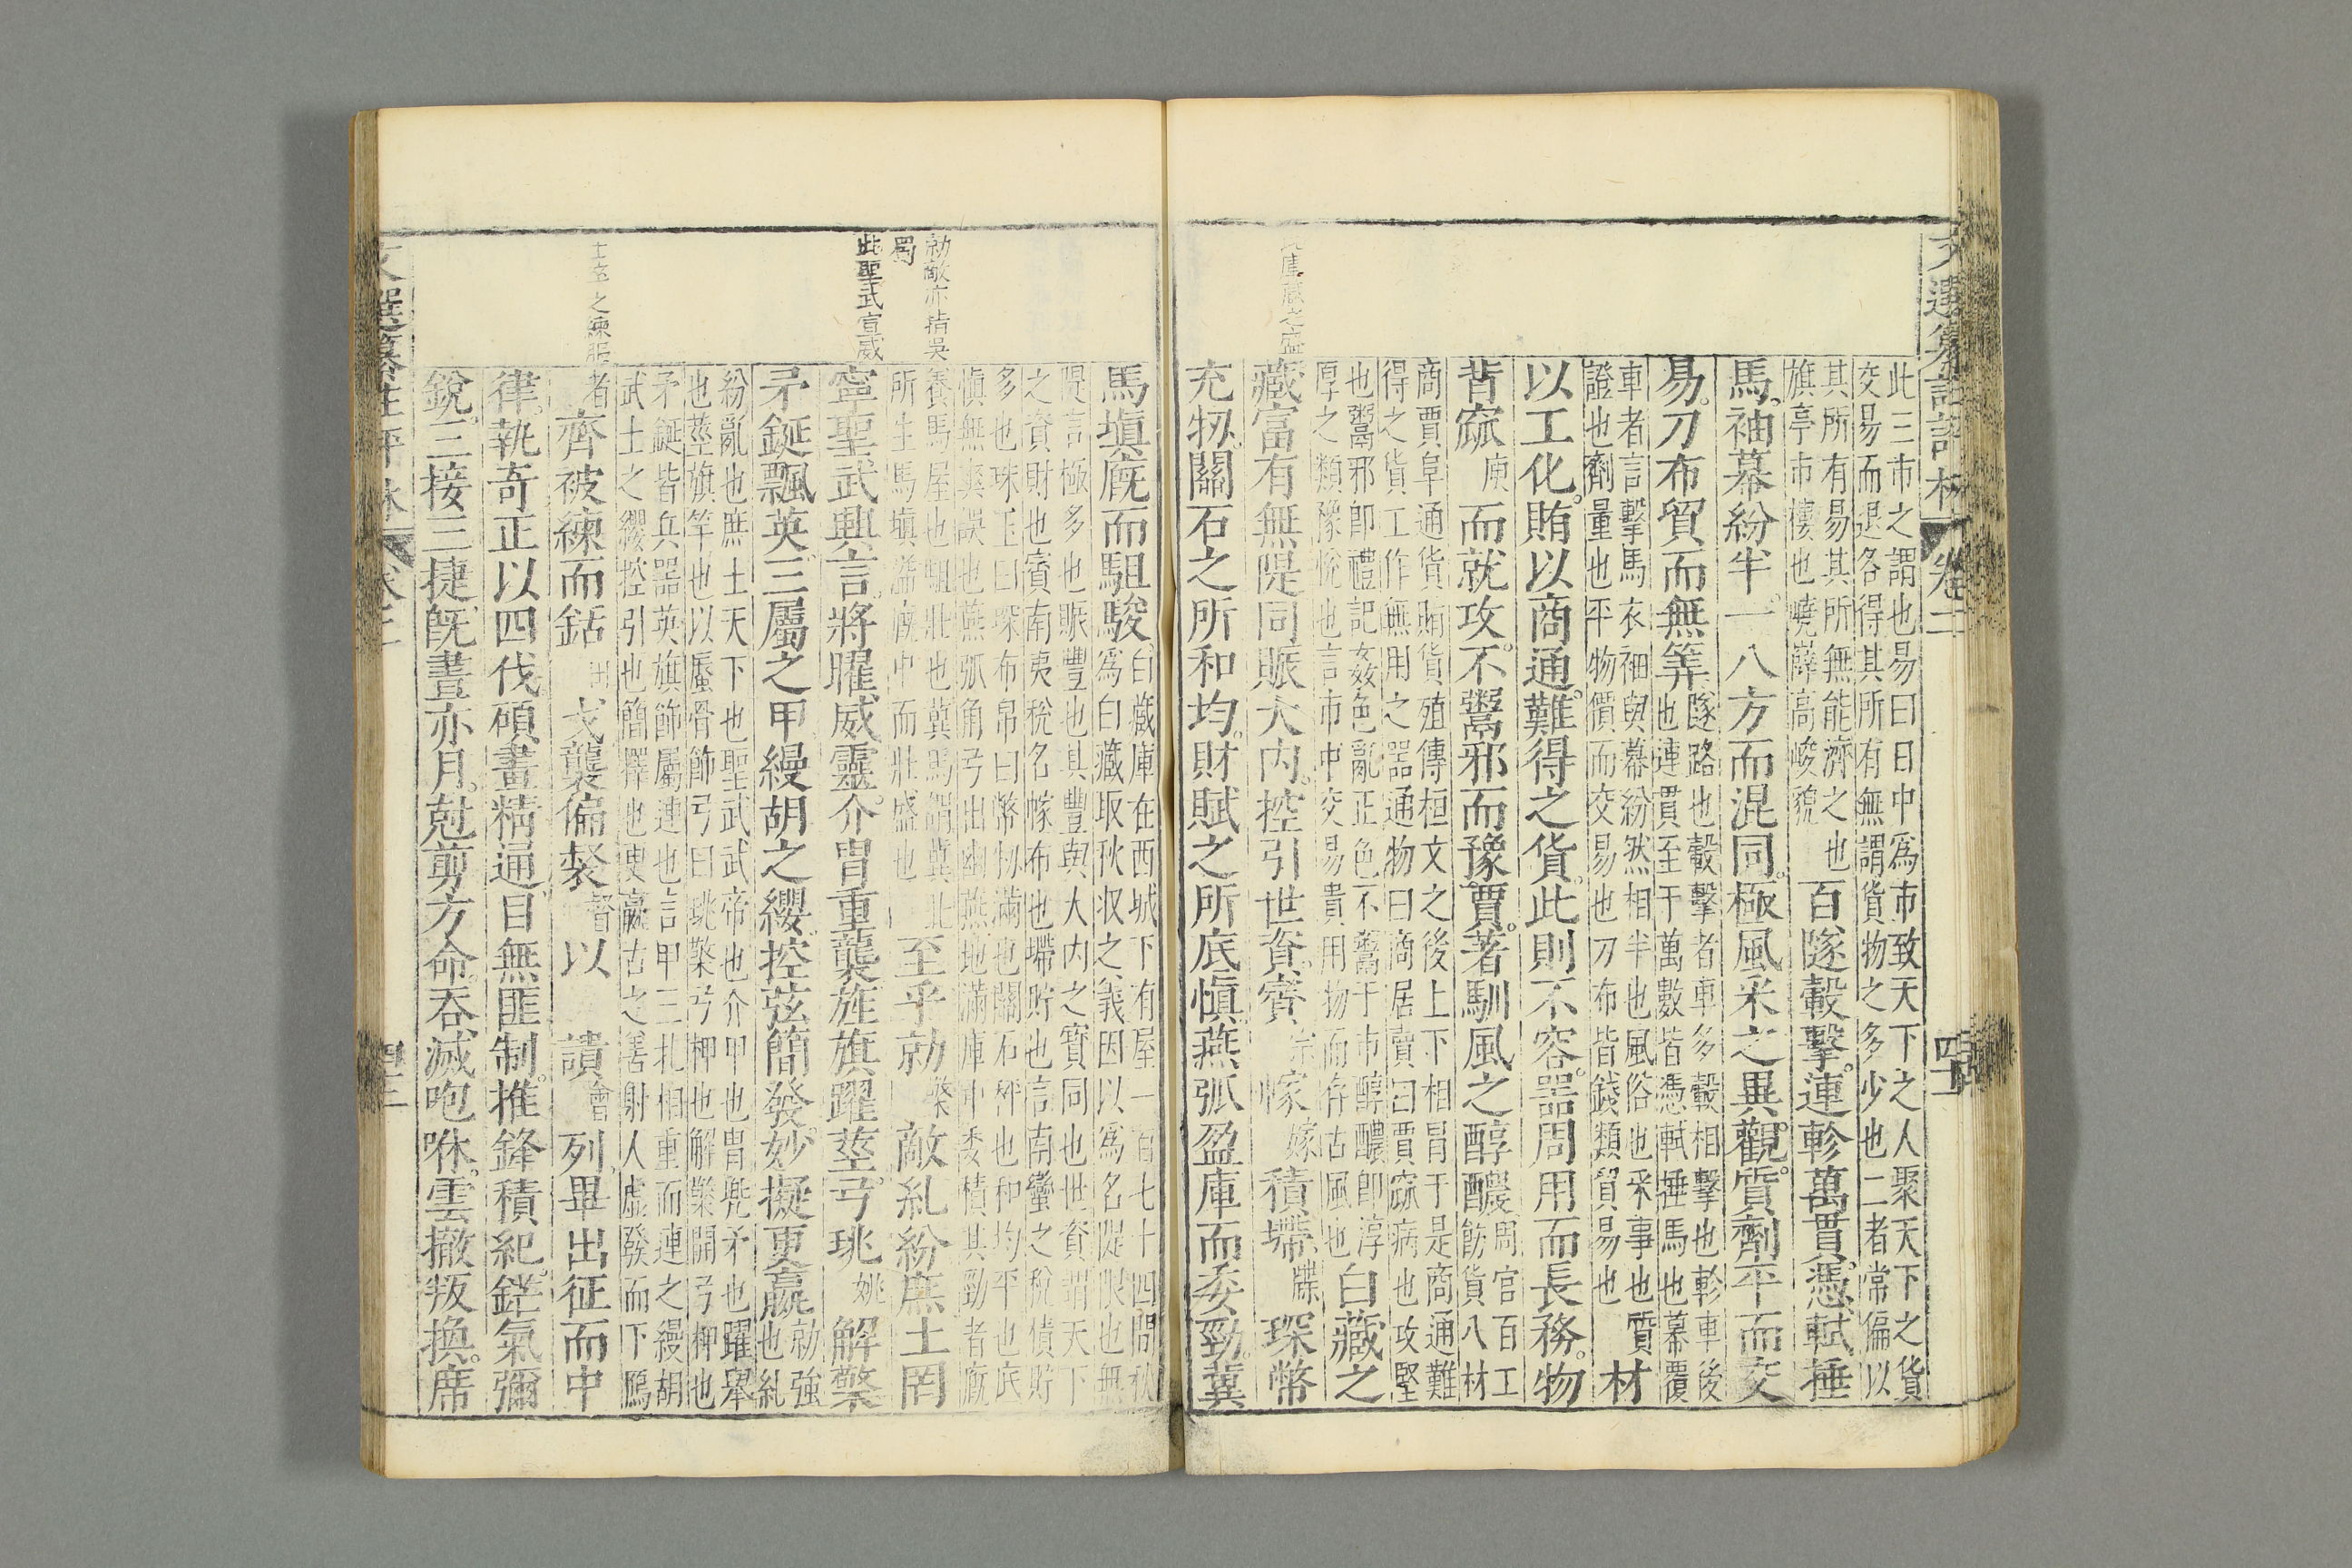 此三市之謂也易曰日中爲市致天下之人聚天下之貨
交易而退各得其所有無謂貨物之多少也二者常偏以
其所有易其所無能濟之也
旗亭市樓也嶢嶭高峻貌
百隧轂擊連軫萬貫憑軾捶
馬袖幕紛半一八方而混同極風采之異觀質劑平而交
易刀布貿而無筭
隧路也轂擊者車多轂相擊也軫車後
也連貫至于萬數皆憑軾捶馬也幕覆
車者言擊馬衣袖與幕紛然相半也風俗也采事也質
證也劑量也平物價而交易也刀布皆錢類貿易也
材
以工化賄以商通難得之貨此則不容器周用而長務物
背窳庾而就攻不鬻邪而豫賈著馴風之醇醲
周官百工
飭貨八材
商賈阜通貨賄貨殖傳桓文之後上下相冐于是商通難
得之貨工作無用之器通物曰商居賣曰賈窳病也攻堅
也鬻邪卽禮記姦色亂正色不鬻于市醇醲卽淳
厚之類豫悅也言市中交易貴用物而存古風也
白藏之
藏富有無隄同賑大內控引世資賨
幏嫁積㙯
琛幣
充牣關石之所和均財賦之所底慎燕弧盈庫而委勁冀
馬塡廐而駔駿
白藏庫在西城下有屋一百七十四間秋
爲白藏取秋收之義因以爲名隄限也無
隄言極多也賑豐也具豐與大內之寶同也世資謂天下
之資財也賨南夷稅名幏布也㙯貯也言南蠻之稅積貯
多也珠玉曰琛布帛曰幣牣滿也關石秤也和均平也底
愼無爽誤也燕弧角弓出幽燕地滿庫中委積其勁者廐
養馬屋也駔壯也冀馬謂冀北
所生馬塡溢廐中而壯盛也
至乎勍
敵糺紛庶土罔
寧聖武興言將曜威靈介冑重襲旌旗躍莖弓珧姚解檠
矛鋋飄英三屬之甲縵胡之纓控弦簡發妙擬更嬴
勍強
也糺
紛亂也庶土天下也聖武武帝也介甲也冑兜矛也躍舉
也莖旗竿也以蜃骨飾弓曰珧檠弓柙也解檠開弓柙也
矛鋋皆兵器英旗飾屬連也言甲三札相重而連之縵胡
武士之纓控引也簡擇也更嬴古之善射人虛發而下鴈
者
齊被練而銛
戈襲偏裻督以
讀
列畢出征而中
律執奇正以四伐碩畫精通目無匪制推鋒積紀鋩氣彌
銳三接三捷旣晝亦月剋剪方命吞滅咆咻雲撤叛換席
勍敵亦指吳
蜀
此聖武宣威
卷二